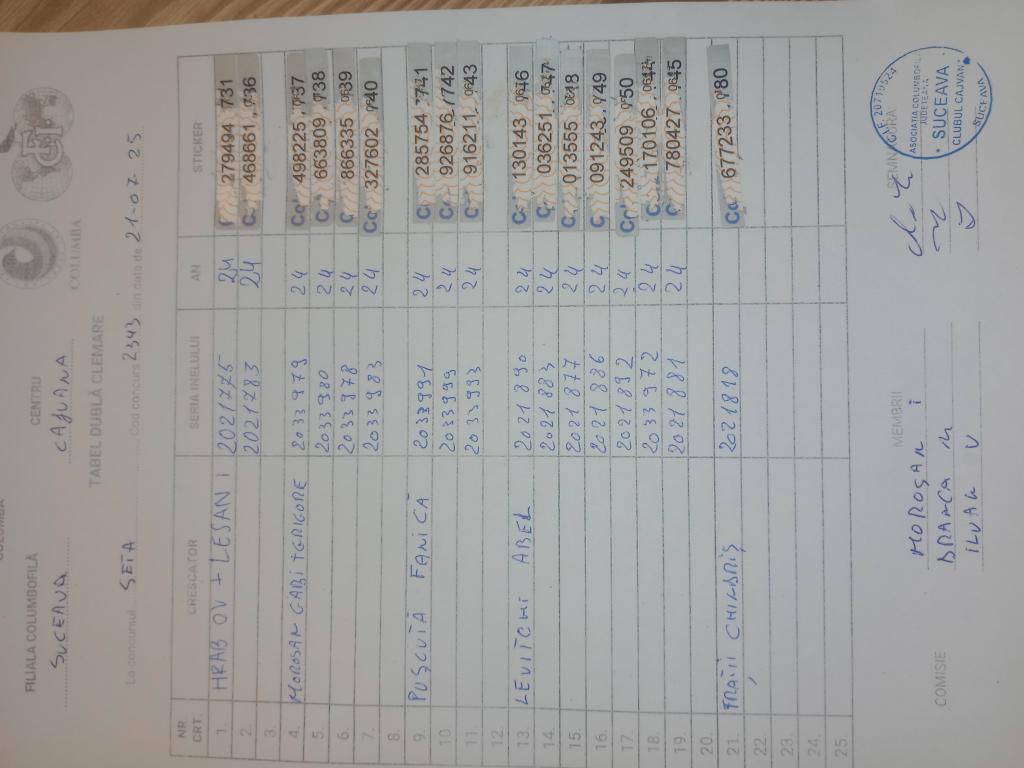 COLUMBA
FILIALA COLUMBOFILĂ
SUCEAVA
CENTRU
CAJVANA
COLUMBA
TABEL DUBLĂ CLEMARE
La concursul SETA Cod concurs 2343 din data de 21-07-25
NR CRT. CRESCATOR SERIA INELULUI AN STICKER
1. HRAB OV + LESAN I 2021775 24 279494 731
2. 2021783 24 C 468661 736
3.
4. MOROSAN GABI+GRIGORE 2033979 24 Co 498225 737
5. 2033980 24 C 663809 738
6. 2033978 24 C 866335 0639
7. 2033983 24 Co 327602 740
8.
9. PUSCUTĂ FANICĂ 2033991 24 C 285754 741
10 2033999 24 C 928876 742
11 2033993 24 C 916211 0643
12.
13. LEVITCHI ABEL 2021890 24 C 130143 0646
14. 2021883 24 C 036251 0647
15. 2021877 24 C 013555 0648
16. 2021886 24 C 091243 0749
17. 2021892 24 C 249509 050
18. 2033972 24 C 170106 0644
19. 2021881 24 C 780427 0645
20.
21. FRATII CHINDRIȘ 2021818 24 Co 677233 0680
22.
23.
24.
25.
COMISIE
MEMBRII
MOROȘAN I
DRANCA M
ILVAK V
ASOCIATIA COLUMBOFILA
JUDETEANA
SUCEAVA
CLUBUL CAJVANA
SUCEAVA